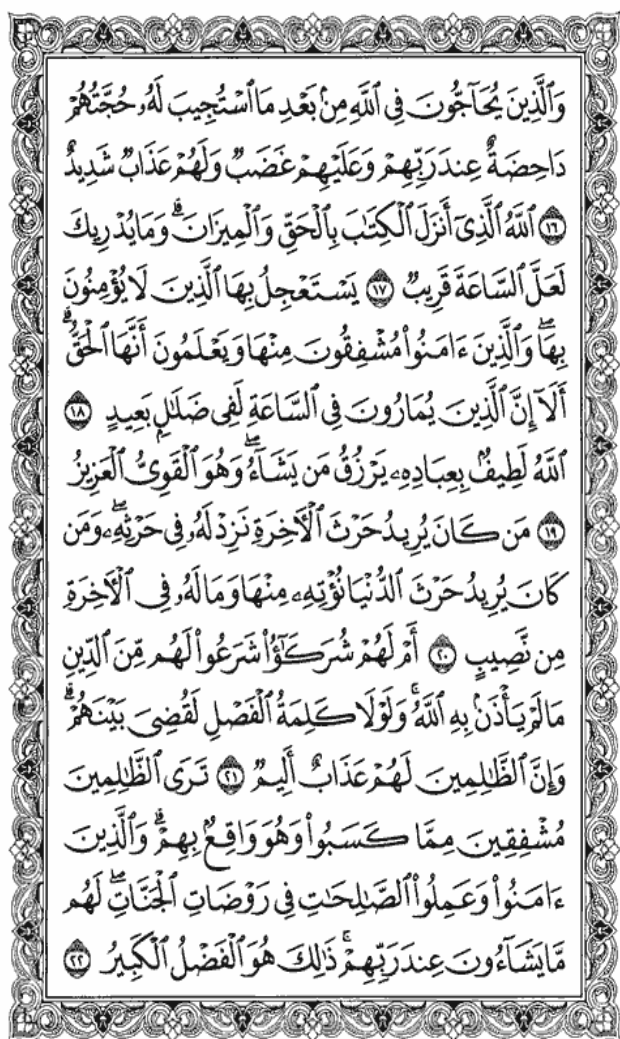 وَٱلَّذِينَ يُحَآجُّونَ فِى ٱللَّهِ مِنۢ بَعْدِ مَا ٱسْتُجِيبَ لَهُۥ حُجَّتُهُمْ
دَاحِضَةٌ عِندَ رَبِّهِمْ وَعَلَيْهِمْ غَضَبٌ وَلَهُمْ عَذَابٌ شَدِيدٌ
١٦ ٱللَّهُ ٱلَّذِىٓ أَنزَلَ ٱلْكِتَٰبَ بِٱلْحَقِّ وَٱلْمِيزَانَۗ وَمَا يُدْرِيكَ
لَعَلَّ ٱلسَّاعَةَ قَرِيبٌ ١٧ يَسْتَعْجِلُ بِهَا ٱلَّذِينَ لَا يُؤْمِنُونَ
بِهَاۖ وَٱلَّذِينَ ءَامَنُوا۟ مُشْفِقُونَ مِنْهَا وَيَعْلَمُونَ أَنَّهَا ٱلْحَقُّۗ
أَلَآ إِنَّ ٱلَّذِينَ يُمَارُونَ فِى ٱلسَّاعَةِ لَفِى ضَلَٰلٍۭ بَعِيدٍ ١٨
ٱللَّهُ لَطِيفٌۢ بِعِبَادِهِۦ يَرْزُقُ مَن يَشَآءُۖ وَهُوَ ٱلْقَوِىُّ ٱلْعَزِيزُ
١٩ مَن كَانَ يُرِيدُ حَرْثَ ٱلْءَاخِرَةِ نَزِدْ لَهُۥ فِى حَرْثِهِۦۖ وَمَن
كَانَ يُرِيدُ حَرْثَ ٱلدُّنْيَا نُؤْتِهِۦ مِنْهَا وَمَا لَهُۥ فِى ٱلْءَاخِرَةِ
مِن نَّصِيبٍ ٢٠ أَمْ لَهُمْ شُرَكَٰٓؤُا۟ شَرَعُوا۟ لَهُم مِّنَ ٱلدِّينِ
مَا لَمْ يَأْذَنۢ بِهِ ٱللَّهُۚ وَلَوْلَا كَلِمَةُ ٱلْفَصْلِ لَقُضِىَ بَيْنَهُمْۗ
وَإِنَّ ٱلظَّٰلِمِينَ لَهُمْ عَذَابٌ أَلِيمٌ ٢١ تَرَى ٱلظَّٰلِمِينَ
مُشْفِقِينَ مِمَّا كَسَبُوا۟ وَهُوَ وَاقِعٌۢ بِهِمْۗ وَٱلَّذِينَ
ءَامَنُوا۟ وَعَمِلُوا۟ ٱلصَّٰلِحَٰتِ فِى رَوْضَاتِ ٱلْجَنَّاتِۖ لَهُم
مَّا يَشَآءُونَ عِندَ رَبِّهِمْۚ ذَٰلِكَ هُوَ ٱلْفَضْلُ ٱلْكَبِيرُ ٢٢